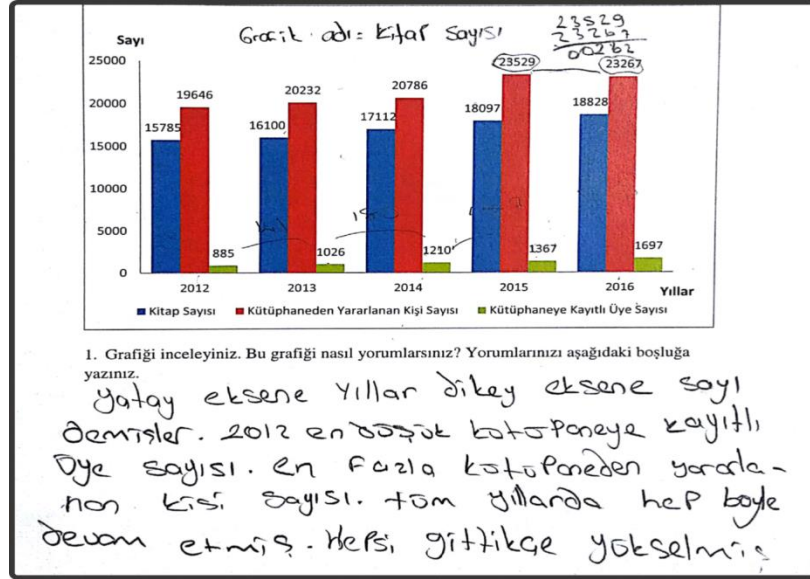 Sayı
Grafik adı= Kitap sayısı
23529
23267
00262
25000
20000
15000
10000
5000
0
15785
19646
885
16100
20232
1026
17112
20786
1210
18097
23529
1367
18828
23267
1697
141
2012
2013
2014
2015
2016
Yıllar
Kitap Sayısı
Kütüphaneden Yararlanan Kişi Sayısı
Kütüphaneye Kayıtlı Üye Sayısı
1. Grafiği inceleyiniz. Bu grafiği nasıl yorumlarsınız? Yorumlarınızı aşağıdaki boşluğa
yazınız.
yatay eksene yıllar dikey eksene sayı
demişler. 2012 en düşük kütüpaneye kayıtlı
üye sayısı. en fazla kütüpaneden yararla-
nan kişi sayısı. tüm yıllarda hep böyle
devam etmiş. Hepsi gittikçe yükselmiş